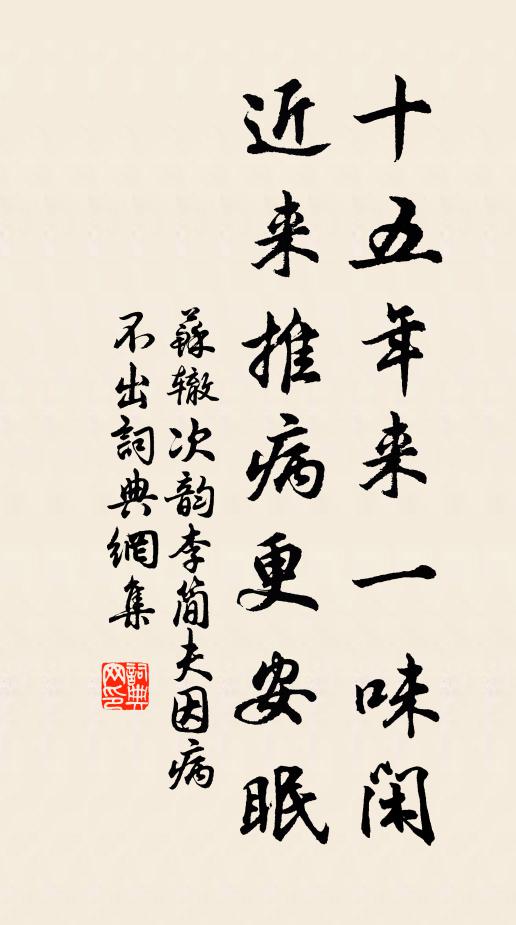 十五年来一味闲
近来推病更安眠
蘇辙次韵李简夫因病
不出詞典網集
詞典网印